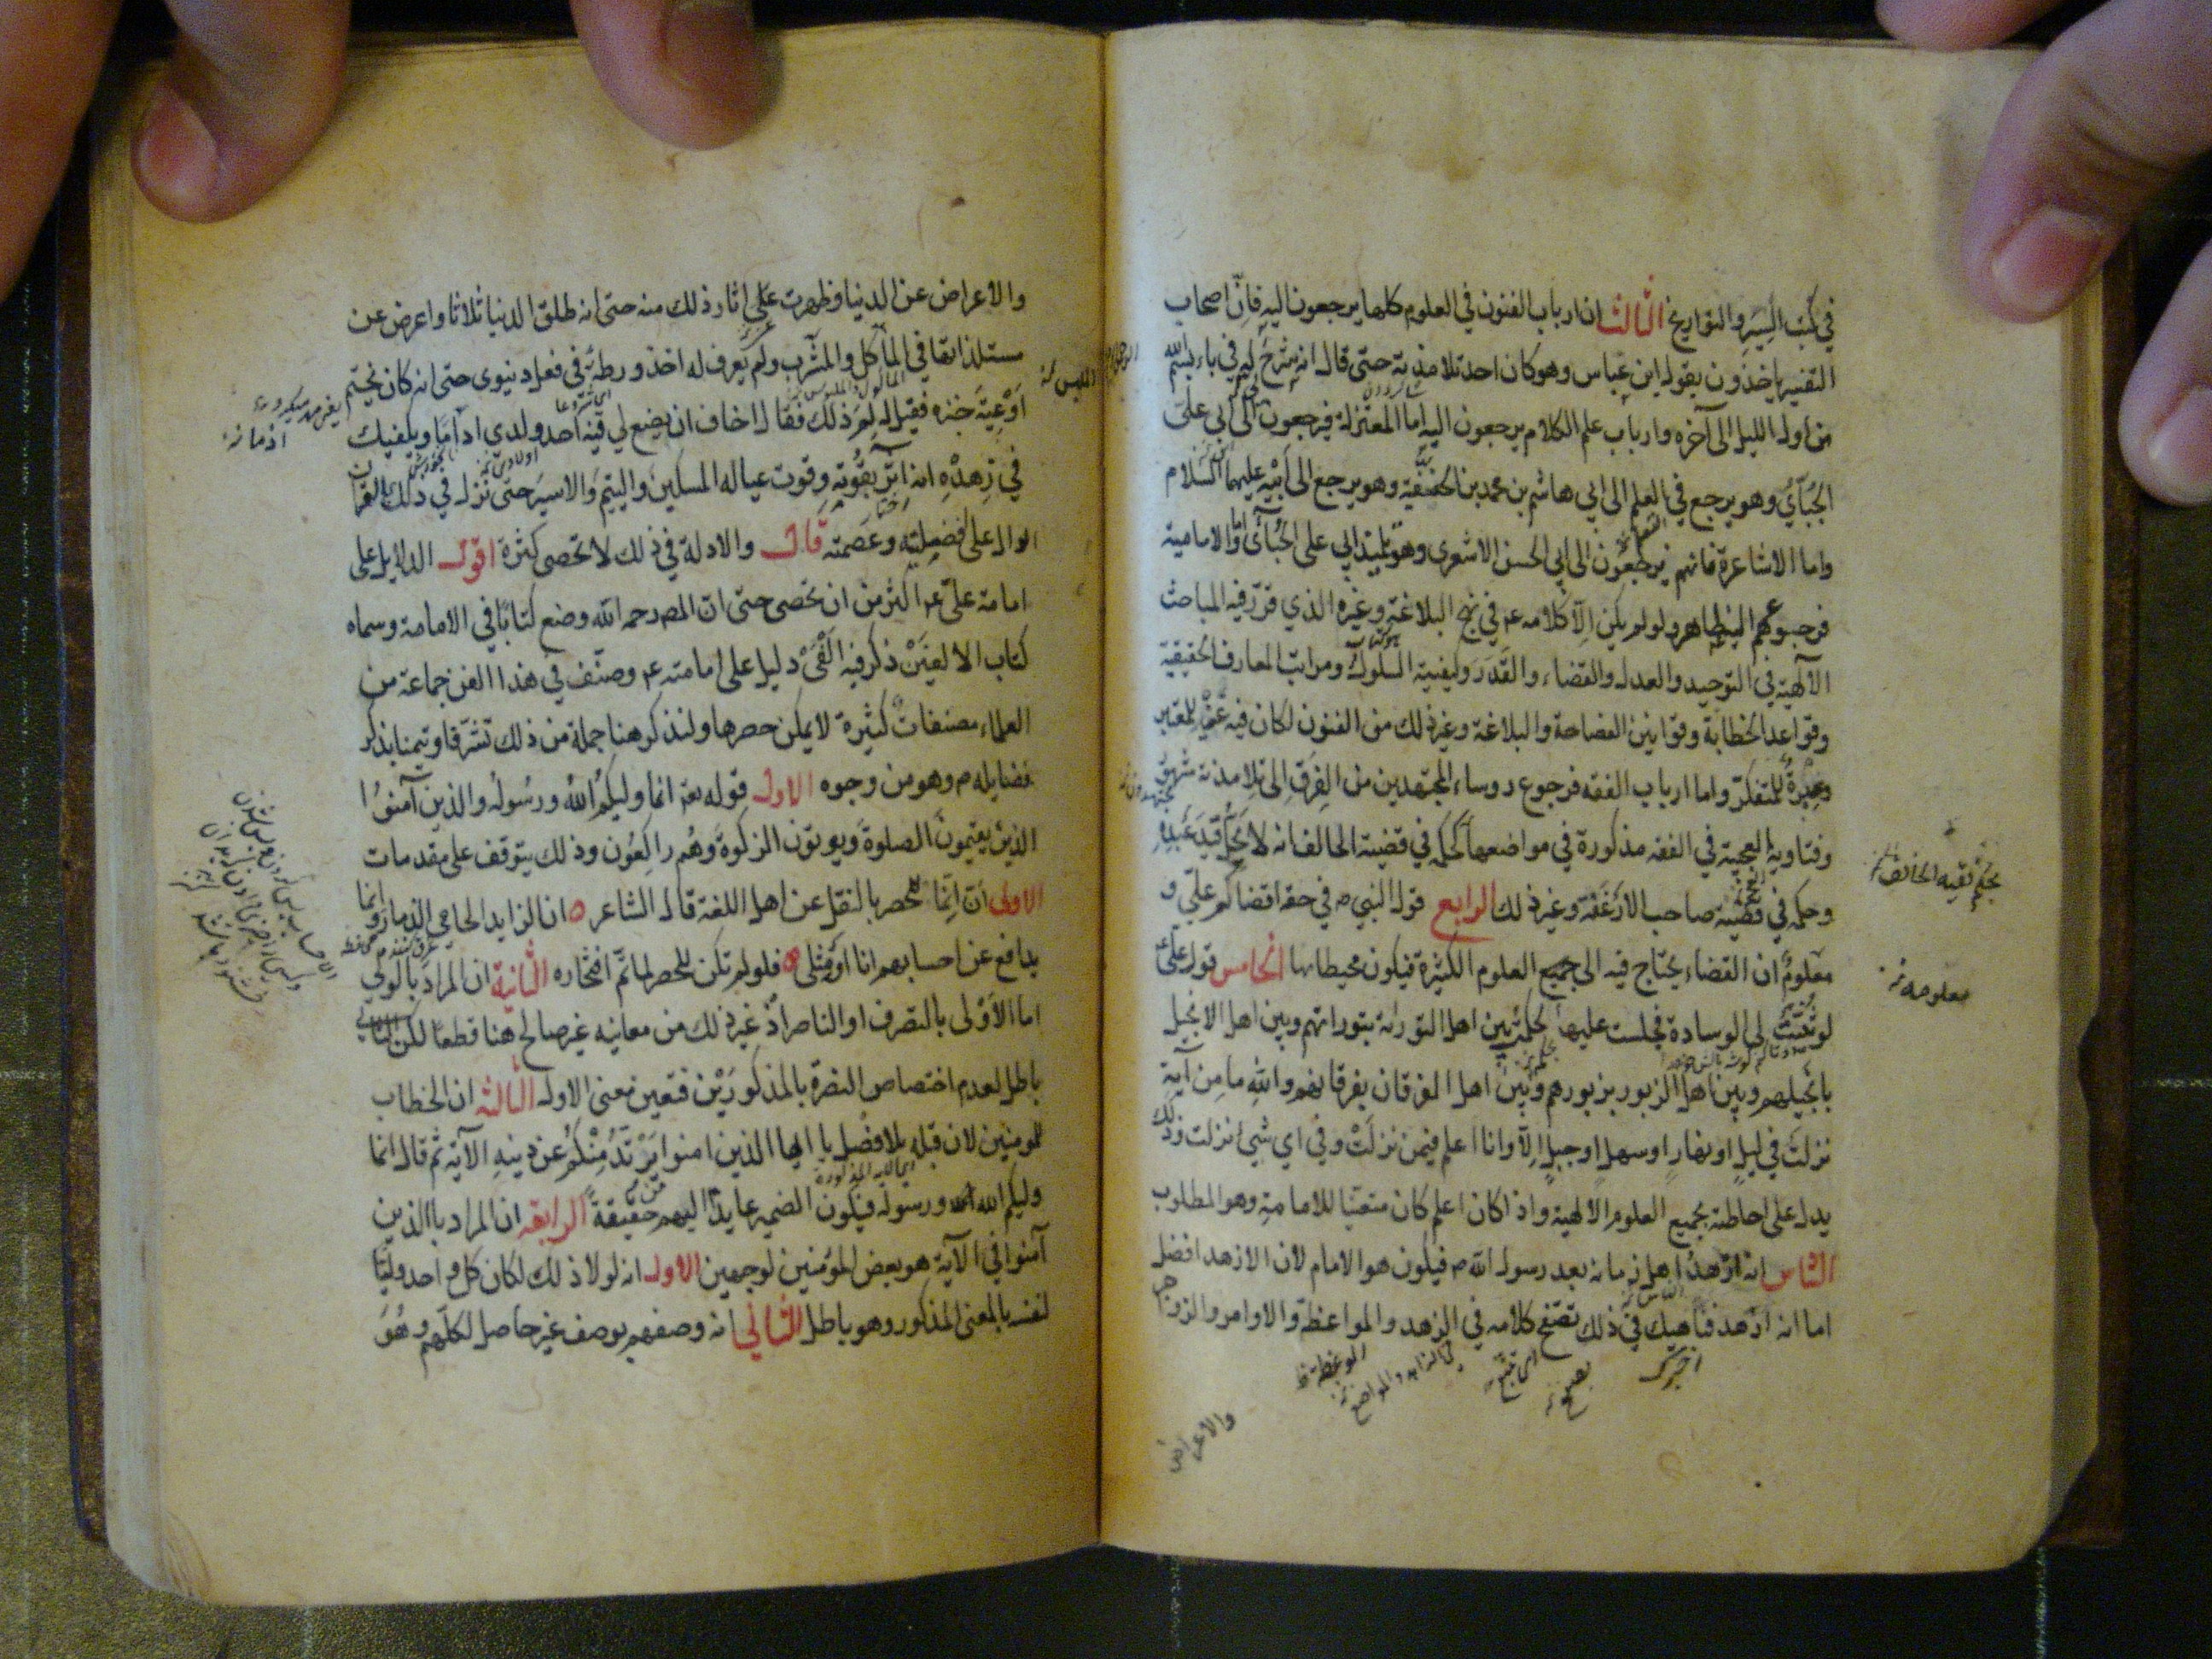 في كتب السير والتواريخ الثالث ان ارباب الفنون في العلوم كلها يرجعون اليه فان اصحاب
التفسير ياخذون بقول ابن عباس وهو كان احد تلامذته حتى قال انه شرح لي في باء بسم الله
من اول الليل الى آخره وارباب علم الكلام يرجعون اليه اما المعتزلة فيرجعون الى ابي علي
الجبآئي وهو يرجع في العلم الى ابي هاشم بن محمد بن الحنفية وهو يرجع الى ابيه عليهما السلام
واما الاشاعرة فانهم يرجعون الى ابي الحسن الاشعري وهو تلميذ ابي علي الجبآئي واما الامامية
فرجوعهم اليه ظاهر ولو لم يكن الا كلامه ع في نهج البلاغة وغيره الذي قرر فيه المباحث
الآلهية في التوحيد والعدل والقضاء والقدر وكيفية السلوك ومراتب المعارف الحقيقية
وقواعد الخطابة وقوانين الفصاحة والبلاغة وغير ذلك من الفنون لكان فيه غنية للمعتبر
وعبرة للمتفكر واما ارباب الفقه فرجوع روساء المجتهدين من الفرق الى تلامذته مشهور
وفتاويه العجيبة في الفقه مذكورة في مواضعها كحكمه في قضية الحالف انه لا يحل قيد عبده
وحكمه في قضية صاحب الارغفة وغير ذلك الرابع قول النبي ص في حقه اقضاكم علي و
معلوم ان القضاء يحتاج فيه الى جميع العلوم الكثيرة فيكون محيطا بها الخامس قول علي ع
لو ثنيت لي الوسادة فجلست عليها لحكمت بين اهل التوراة بتوراتهم وبين اهل الانجيل
بانجيلهم وبين اهل الزبور بزبورهم وبين اهل الفرقان بفرقانهم والله ما من آية
نزلت في ليل او نهار او سهل او جبل الا وانا اعلم فيمن نزلت وفي اي شيئ نزلت وذلك
يدل على احاطته بجميع العلوم الالهية واذا كان اعلم كان متعينا للامامة وهو المطلوب
الثامن انه ازهد اهل زمانه بعد رسول الله ص فيكون هو الامام لان الازهد افضل
اما انه ازهد فناهيك في ذلك تصفح كلامه في الزهد والمواعظة والاوامر والزواجر
والاعراض
بحكم
معلومه
والاعراض عن الدنيا وظهرت على اثار ذلك منه حتى انه طلق الدنيا ثلاثا واعرض عن
مستلذاتها في المآكل والمشرب ولم يعرف له اخذ ورطة في فعل دنيوي حتى انه كان يختم
اوعية خبزه فقيل له لم ذلك فقال اخاف ان يضع لي فيه احد ولدي اداما ويكفيك
في زهده انه اثر بقوته وقوت عياله المسكين واليتيم والاسير حتى نزل في ذلك القرآن
الدال على افضليته وعصمته قال والادلة في ذلك لا تحصى كثرة اقول الدلايل على
امامة علي ع اكثر من ان تحصى حتى ان المصـ رحمه الله وضع كتابا في الامامة وسماه
كتاب الالفين ذكر فيه الفي دليل على امامته ع وصنف في هذا الفن جماعة من
العلماء مصنفات كثيرة لا يمكن حصرها ولنذكر هنا جملة من ذلك تشرفا وتيمنا بذكر
فضايله ع وهو من وجوه الاول قوله تعـ انما وليكم الله ورسوله والذين آمنوا
الذين يقيمون الصلوة ويوتون الزكوة وهم راكعون وذلك يتوقف على مقدمات
الاولى ان انما للحصر بالنقل عن اهل اللغة قال الشاعر انا الزايد الحامي الذمار وانما
يدافع عن احسابهم انا او مثلي فلو لم تكن للحصر لما تم افتخاره الثانية ان المراد بالولي
اما الاولى بالتصرف او الناصر اذ غير ذلك من معانيه غير صالح هنا قطعا لكن الثاني
باطل لعدم اختصاص النصرة بالمذكورين فتعين معنى الاول الثالثة ان الخطاب
للمومنين لان قبله بلا فصل يا ايها الذين امنوا من يرتد منكم عن دينه الآية ثم قال انما
وليكم الله ورسوله فيكون الضمير عايدا اليهم حقيقة الرابعة ان المراد بالذين
آمنوا في الآية هو بعض المؤمنين لوجهين الاول انه لولا ذلك لكان كل واحد وليا
لنفسه بالمعنى المذكور وهو باطل الثاني انه وصفهم بوصف غير حاصل لكلهم وهو